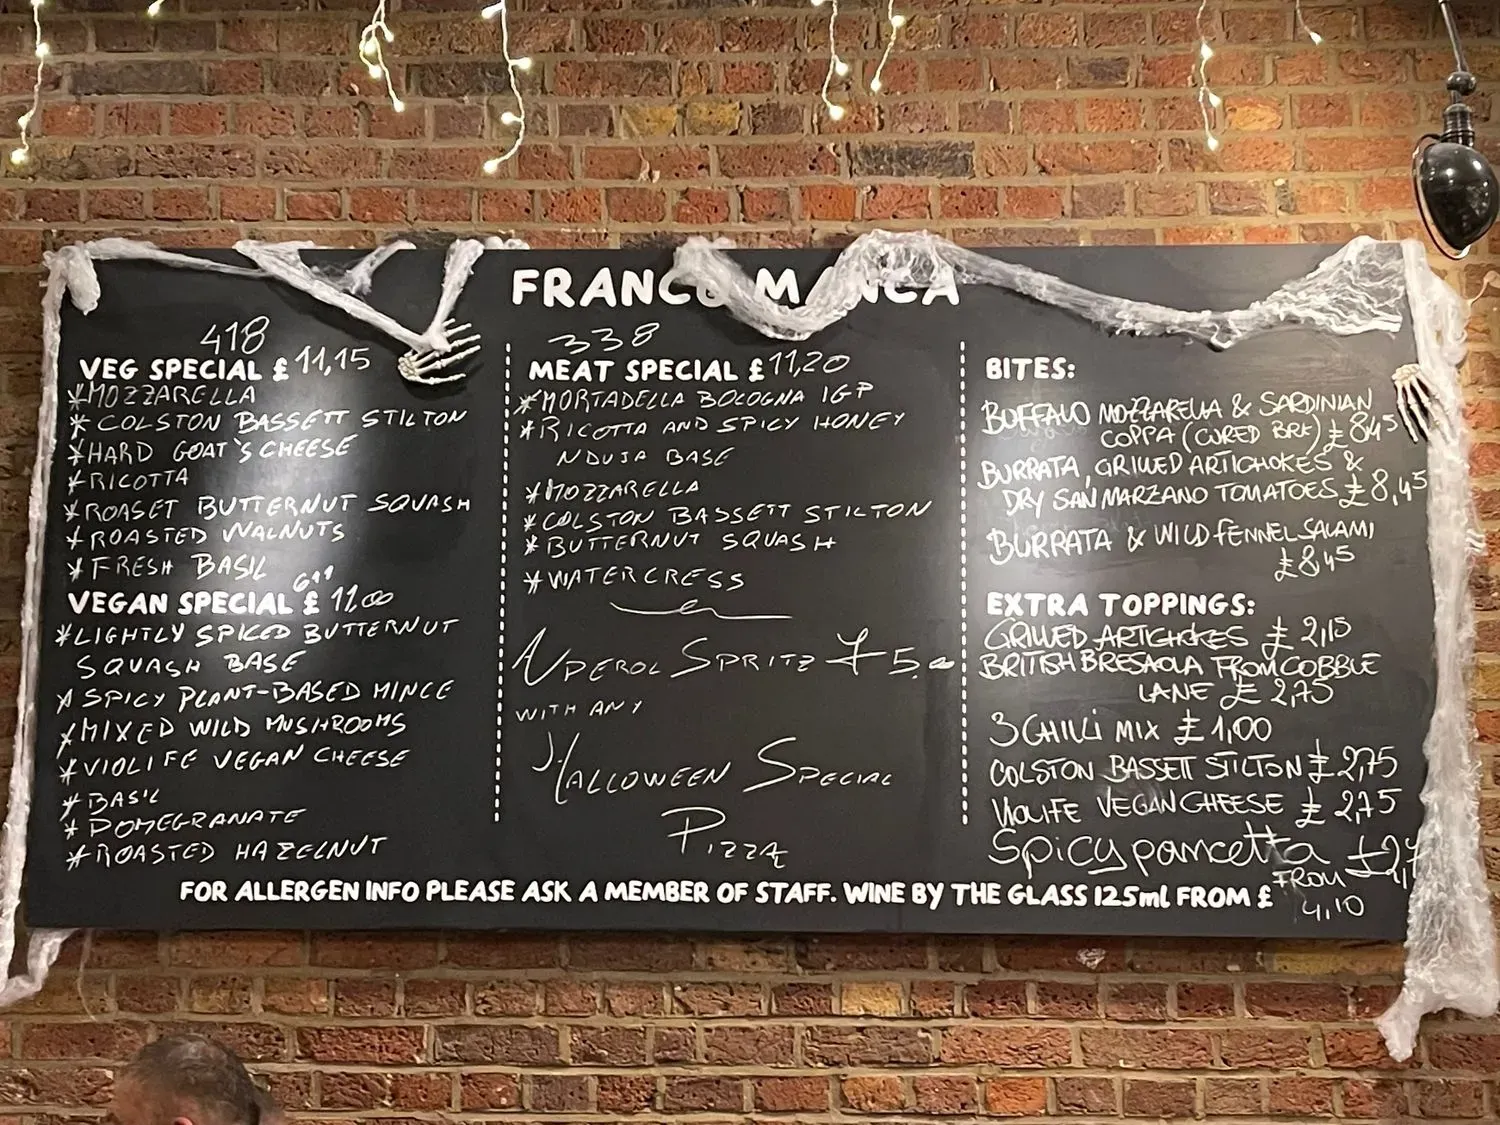 FRANCO MANCA
418
VEG SPECIAL £ 11,15
*MOZZARELLA
*COLSTON BASSETT STILTON
*HARD GOAT'S CHEESE
*RICOTTA
*ROASET BUTTERNUT SQUASH
*ROASTED WALNUTS
*FRESH BASIL
611
VEGAN SPECIAL £ 11.00
*LIGHTLY SPICED BUTTERNUT
SQUASH BASE
*SPICY PLANT-BASED MINCE
*MIXED WILD MUSHROOMS
*VIOLIFE VEGAN CHEESE
*BASIL
*POMEGRANATE
*ROASTED HAZELNUT
338
MEAT SPECIAL £ 11,20
*MORTADELLA BOLOGNA IGP
*RICOTTA AND SPICY HONEY
NDUJA BASE
*MOZZARELLA
*COLSTON BASSETT STILTON
*BUTTERNUT SQUASH
*WATERCRESS
APEROL SPRITZ £5.00
WITH ANY
HALLOWEEN SPECIAL
PIZZA
BITES:
BUFFALO MOZZARELLA & SARDINIAN
COPPA (CURED) £ 8,45
BURRATA, GRILLED ARTICHOKES &
DRY SAN MARZANO TOMATOES £ 8,45
BURRATA & WILD FENNEL SALAMI
£8,45
EXTRA TOPPINGS:
GRILLED ARTICHOKES £ 2,15
BRITISH BRESAOLA FROM COBBLE
LANE £ 2,75
3 CHILLI MIX £ 1,00
COLSTON BASSETT STILTON £ 2,75
VIOLIFE VEGAN CHEESE £ 2,75
Spicy pancetta
FOR ALLERGEN INFO PLEASE ASK A MEMBER OF STAFF. WINE BY THE GLASS 125ml FROM £ FROM 4,10